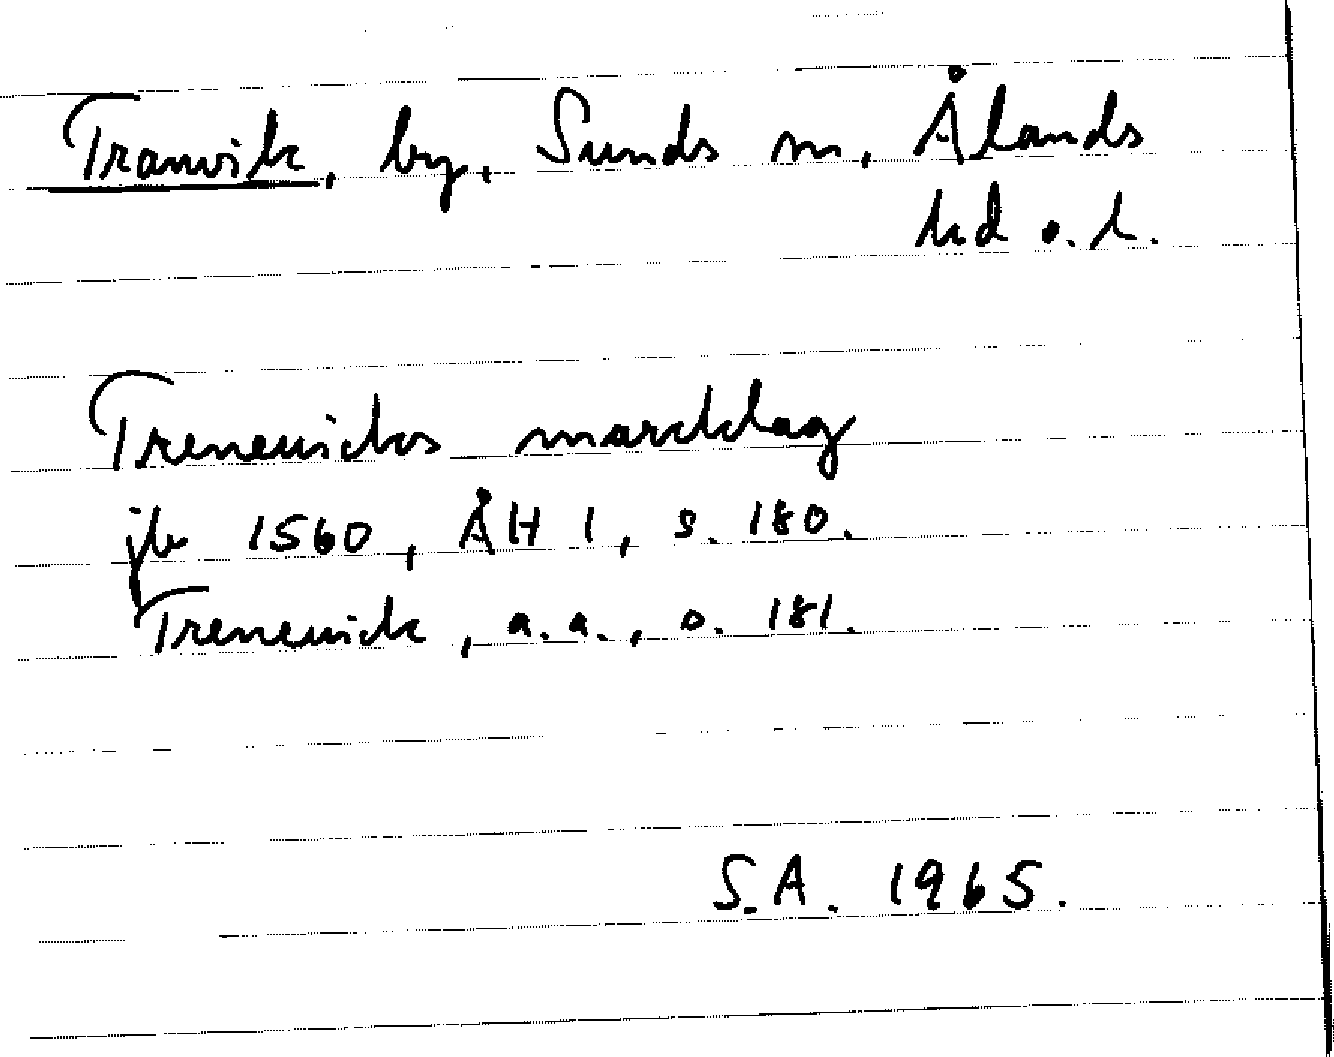 Tranvik, by, Sunds m, Ålands
hd o. l.
Trenewicks marcklag
jb 1560, ÅH 1, s. 180.
Trenewick, a.a., s. 181.
S.A. 1965.